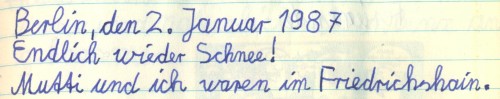 Berlin, den 2. Januar 1987
Endlich wieder Schnee!
Mutti und ich waren im Friedrichshain.